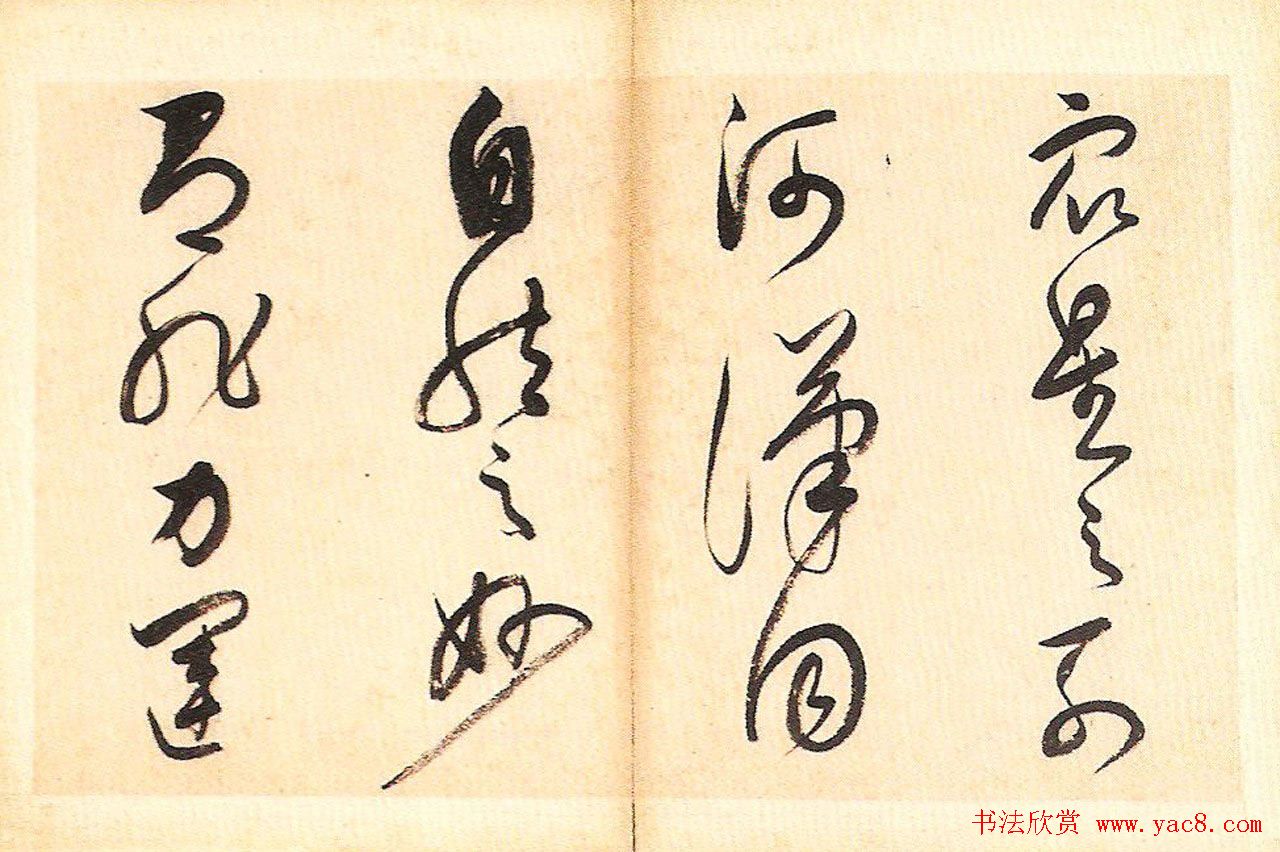 衆星之列
河漢同
自然之妙
有非力運
书法欣赏 www.yac8.com